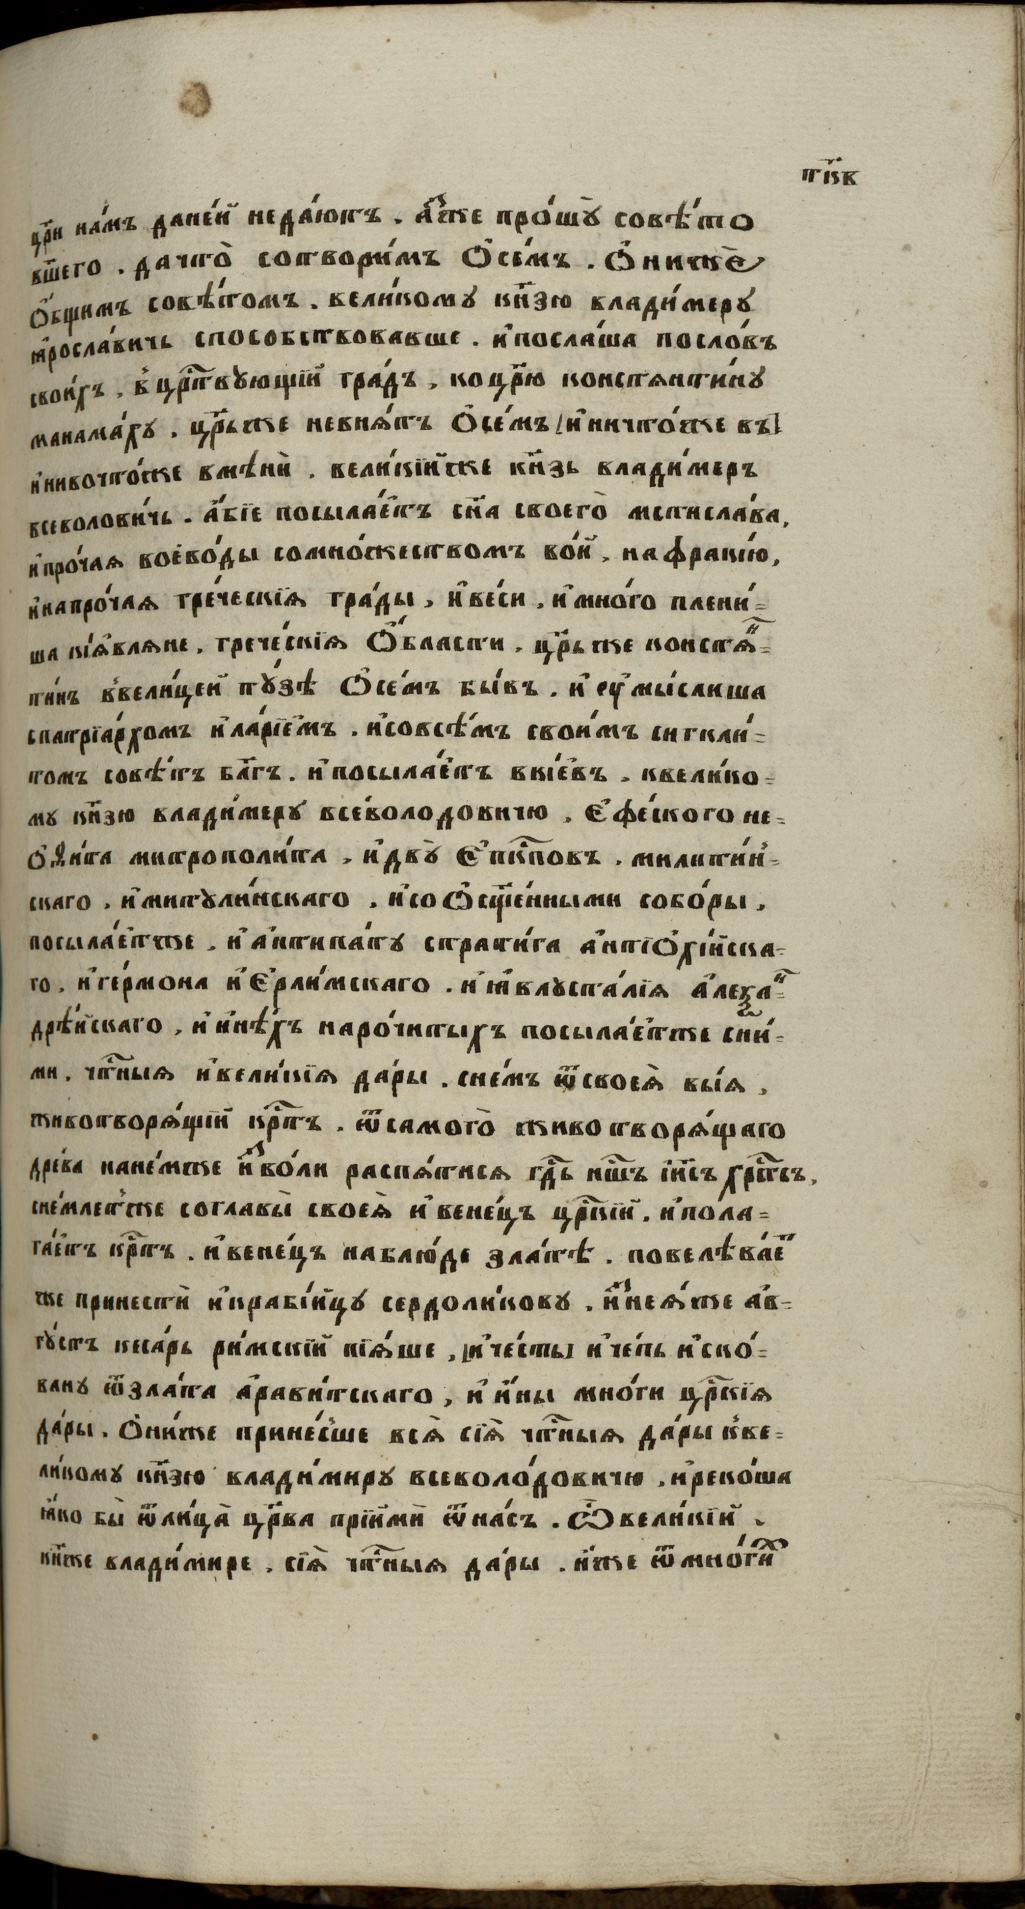 тк҃в
цр҃и на́мъ дане́й недаю́тъ . а҆́зже про́шꙋ совѣ́то
вш҃его . да что̀ сотвори́мъ ѻ҆се́мъ . ѻ҆нижѐ
ѻ҆́бщимъ совѣ́томъ . вели́кому кн҃зю влади́меру
ꙗ҆росла́вичь способствовавше . и҆посла́ша посло́въ
свои́хъ . в҆ црⷭ҇твꙋющїй гра́дъ , ко цр҃ю константи́нꙋ
манама́хꙋ . цр҃ь же невня́тъ ѻ҆се́мъ [и҆ ничто́же въ]
и҆нивочто́же вмѣнѝ . вели́кїйже кн҃зь влади́меръ
всеволовичь . а҆́бїе посыла́етъ сн҃а своего̀ мстисла́ва ,
и҆про́чая воево́ды сомно́жествомъ во́й , на фраки́ю ,
и҆напро́чая гре́ческїя гра́ды , и҆ве́си , и҆мно́го плени́-
ша кїя́вляне , гре́ческїя ѻ҆́бласти . цр҃ь же констя́ⷩ-
ти́нъ в҆вели́цей тꙋ́зѣ ѻ҆се́мъ бы́въ . и҆ ᲂу҆мы́слиша
спатрїа́рхомъ и҆ла́рїемъ . и҆совсѣ́мъ свои́мъ сигкли́-
томъ совѣ́тъ бл҃гъ . и҆посыла́етъ вкі́евъ , квели́ко-
му кн҃зю влади́меру всеволодовичю , е҆фе́ского не-
ѻ҆ѳи́та митрополи́та , и҆двꙋ̀ е҆пⷭ҇кповъ . милити́н-
скаго , и҆митꙋли́нскаго , и҆со ѻ҆сщ҃е́нными собо́ры ,
посыла́етже , и҆ а҆нтипа́тꙋ страти́га а҆нтїѻхі́йска-
го , и҆ге́рмона и҆ е҆рли́мскаго . и҆ ꙗ҆влꙋста́лїя а҆леѯаⷩ-
дрѣ́йскаго , и҆ и҆нѣ́хъ наро́читыхъ посыла́етже сни́-
ми , чтⷭ҇ныя и҆вели́кїя да́ры . сне́мъ ѿсвоея̀ вы́я ,
животворя́щїй крⷭ҇тъ , ѿсамого̀ животворя́щаго
дре́ва нане́мже и҆зво́ли распя́тися гдⷭ҇ь нш҃ъ і҆и҃съ хрⷭ҇тсъ ,
сне́млетже соглавы̀ своея̀ и҆ вене́цъ црⷭ҇кїй . и҆пола-
га́етъ крⷭ҇тъ . и҆вене́цъ наблю́де зла́тѣ . повелѣва́еⷮ
же принестѝ и҆крабі́йцꙋ сердоли́ковꙋ , и҆знея́же а҆́в-
гꙋстъ ке́сарь ри́мскїй пїя́ше , [и҆че́сть] и҆че́пь и҆ско́-
вану ѿзла́та а҆рави́тскаго , и҆ и҆́ны мно́ги црⷭ҇кїя
да́ры . ѻ҆ни́же прине́сше вся̀ сїя̀ чтⷭ҇ныя да́ры к҆ве-
ли́кому кн҃зю влади́мирꙋ всеволо́довичю , и҆реко́ша
ꙗ҆́ко бы̀ ѿлица̀ цр҃ва прїимѝ ѿна́съ . ѽ вели́кїй
кн҃же влади́мире , сїя̀ чтⷭ҇ныя да́ры . и҆́же ѿмно́гиⷯ